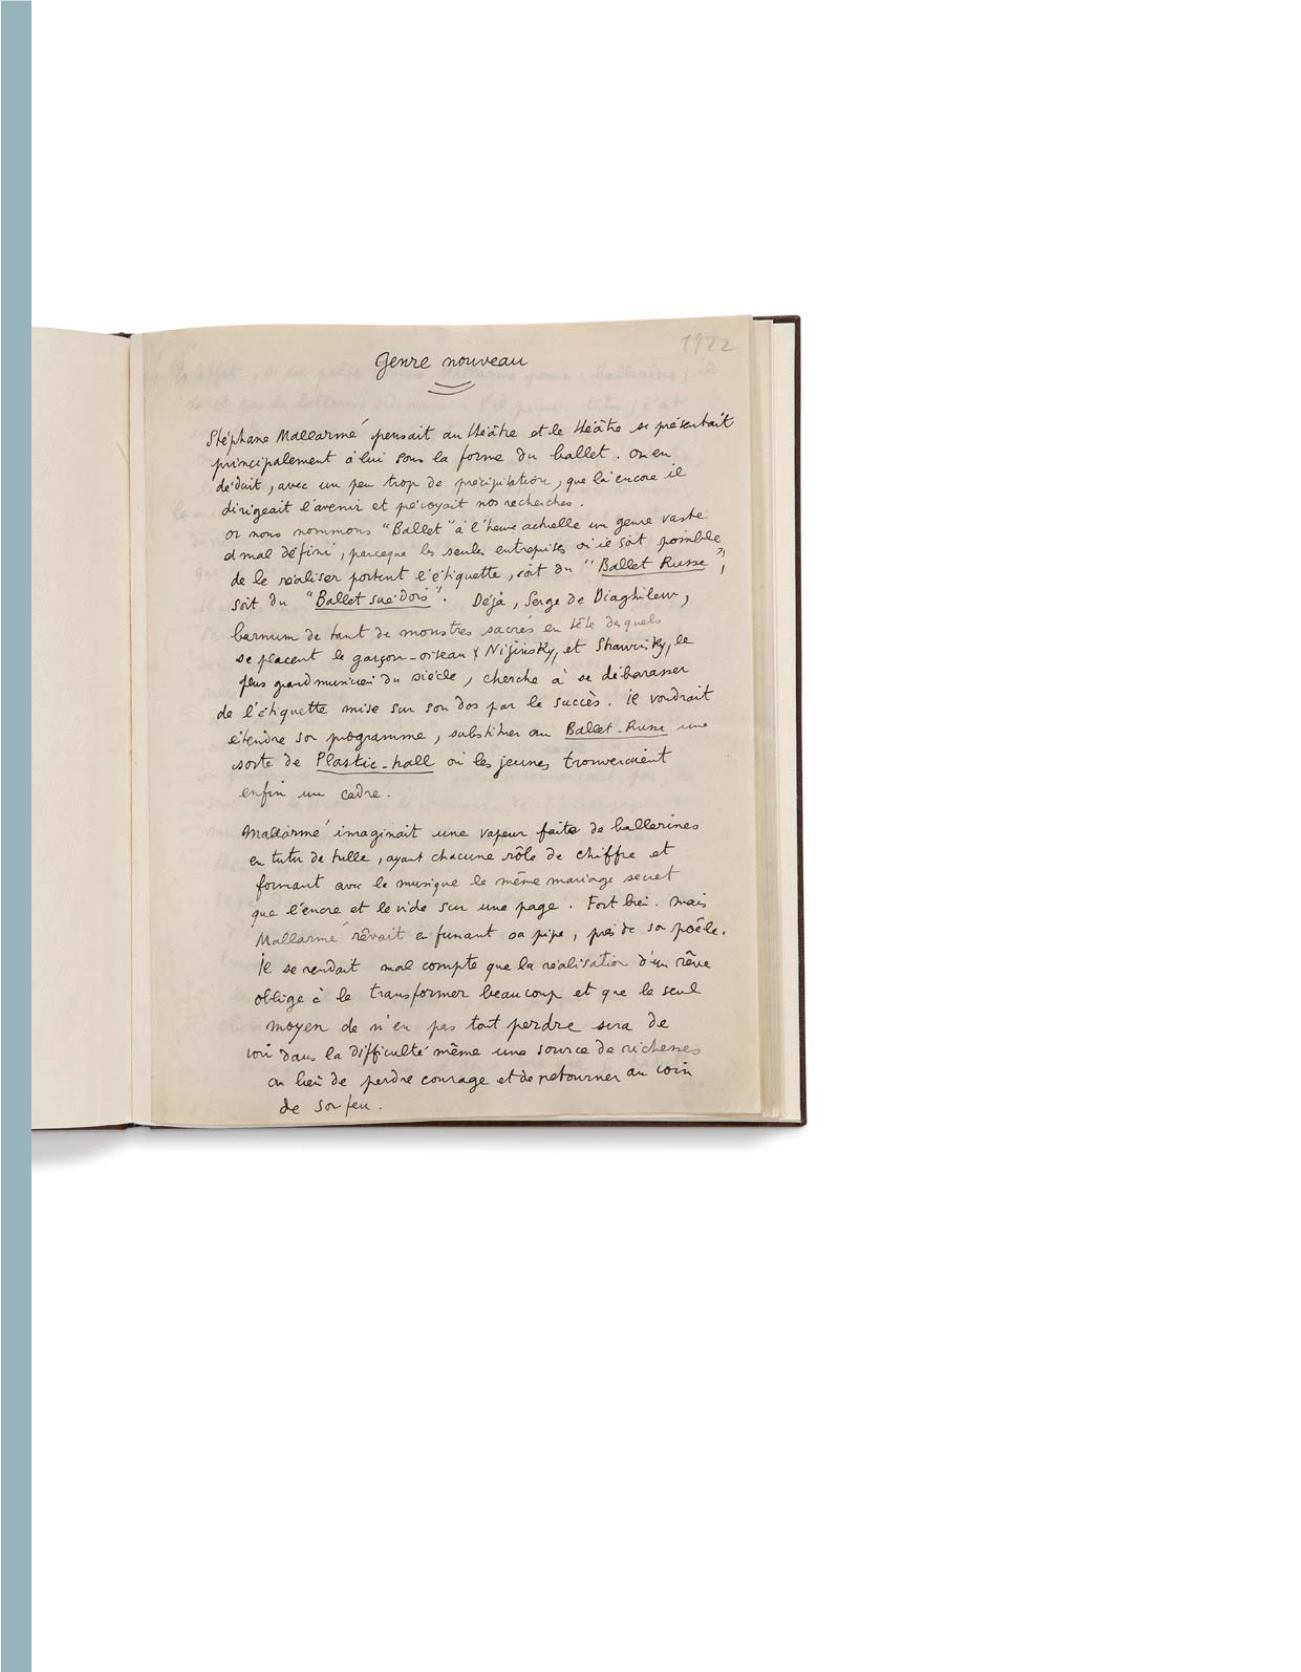 1922
Genre nouveau
Stéphane Mallarmé pensait au théâtre et le théâtre se présentait
principalement à lui sous la forme du ballet. On en
déduit, avec un peu trop de précipitation, que là encore il
dirigeait l'avenir et prévoyait nos recherches.
Or nous nommons "Ballet" à l'heure actuelle un genre vaste
et mal défini, parceque les seules entreprises où il soit possible
de le réaliser portent l'étiquette, soit du "Ballet Russe",
soit du "Ballet suédois". Déjà, Serge de Diaghilew,
barnum de tant de monstres sacrés en tête desquels
se placent le garçon-oiseau Nijinsky, et Strawinsky, le
plus grand musicien du siècle, cherche à se débarasser
de l'étiquette mise sur son dos par le succès. Il voudrait
étendre son programme, substituer au Ballet-Russe une
sorte de Plastic-hall où les jeunes trouveraient
enfin un cadre.
Mallarmé imaginait une vapeur faite de ballerines
en tutu de tulle, ayant chacune rôle de chiffre et
formant avec la musique le même mariage secret
que l'encre et le vide sur une page. Fort bien. Mais
Mallarmé rêvait en fumant sa pipe, près de son poêle.
Il se rendait mal compte que la réalisation d'un rêve
oblige à le transformer beaucoup et que le seul
moyen de n'en pas tout perdre sera de
voir dans la difficulté même une source de richesses
au lieu de perdre courage et de retourner au coin
de son feu.